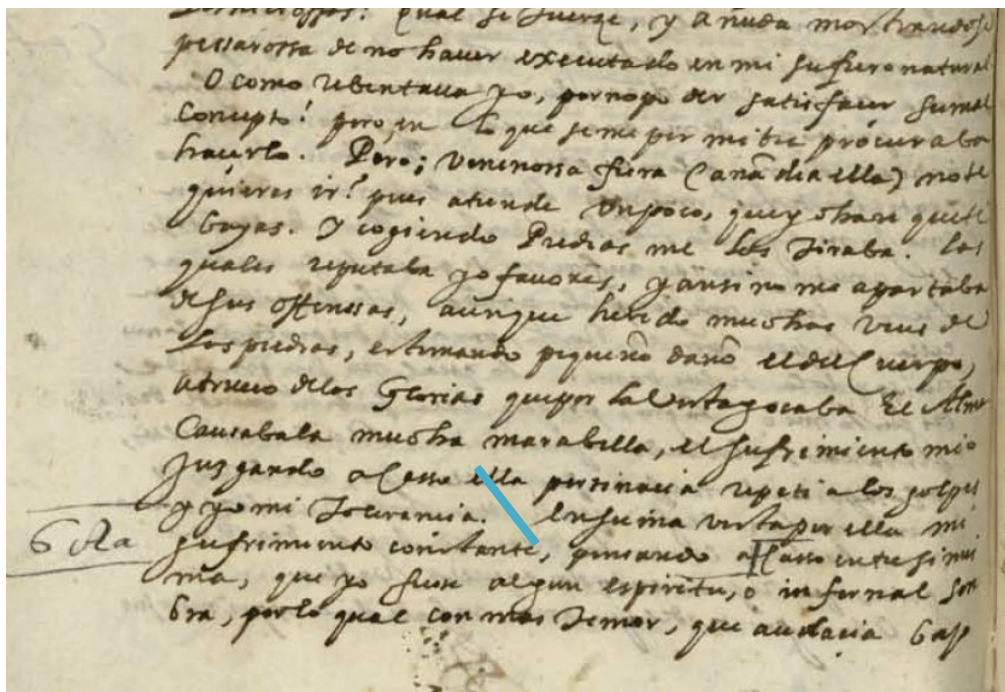 qual se tuerze, y añuda mostrandose
pessarossa de no haver executado en mi su fiero natural
O como rebentaua yo, por no poder satisfacer su mal
Concepto! pero, en lo que se me permitie procuraba
hacerlo. Pero; Venenossa fiera (anãdia ella) no te
quieres ir? pues atiende Un poco, que yo hare que te
bayas. Y cogiendo Piedras me las Tiraba. Las
quales reputaba yo favores, y ausi no me apartaba
de sus offenssas, aunque herido muchas veces de
las piedras, estimando pequeño daño el del Cuerpo,
a trueco de las Glorias que por la Vista gocaba El Alma
Causabala mucha marabilla, el sufrimiento mio
Juzgando acasso ella pertinacia repetia los golpes
y yo mi Tolerancia. En suma vista por ella mi
6 Rta
sufrimiento constante, pensando acasso entre si mis
ma, que yo fuese algun espiritu, o infernal som
bra, por lo qual con mas Temor, que audacia